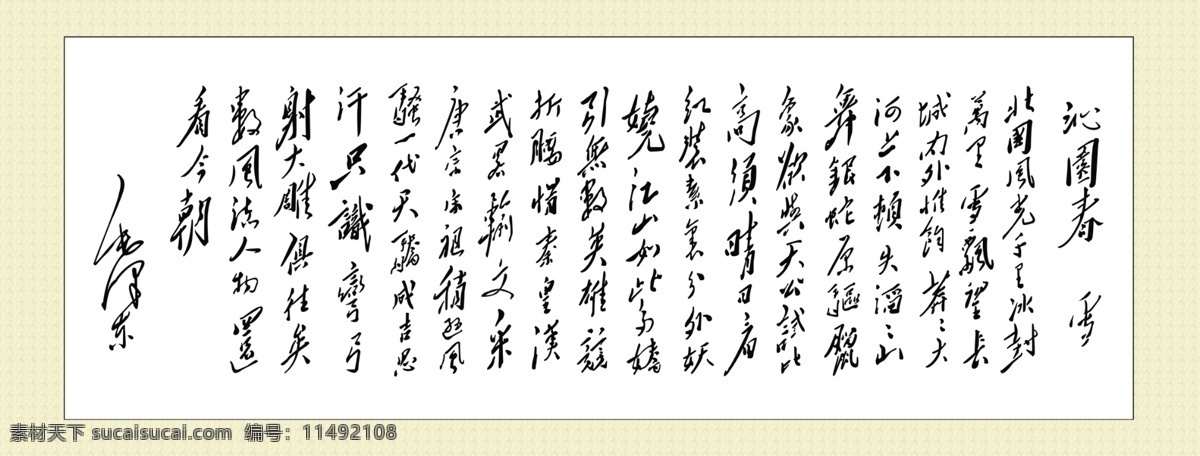 沁園春 雪
北國風光千里冰封
萬里雪飄望長
城內外惟餘莽〻大
河上下頓失滔〻山
舞銀蛇原驅臘
象欲與天公試比
高須晴日看
紅裝素裹分外妖
嬈江山如此多嬌
引無數英雄競
折腰惜秦皇漢
武畧輸文采
唐宗宋祖稍遜風
騷一代天驕成吉思
汗只識彎弓
射大雕俱往矣
數風流人物還
看今朝
毛澤東
素材天下 sucaisucai.com 编号：11492108